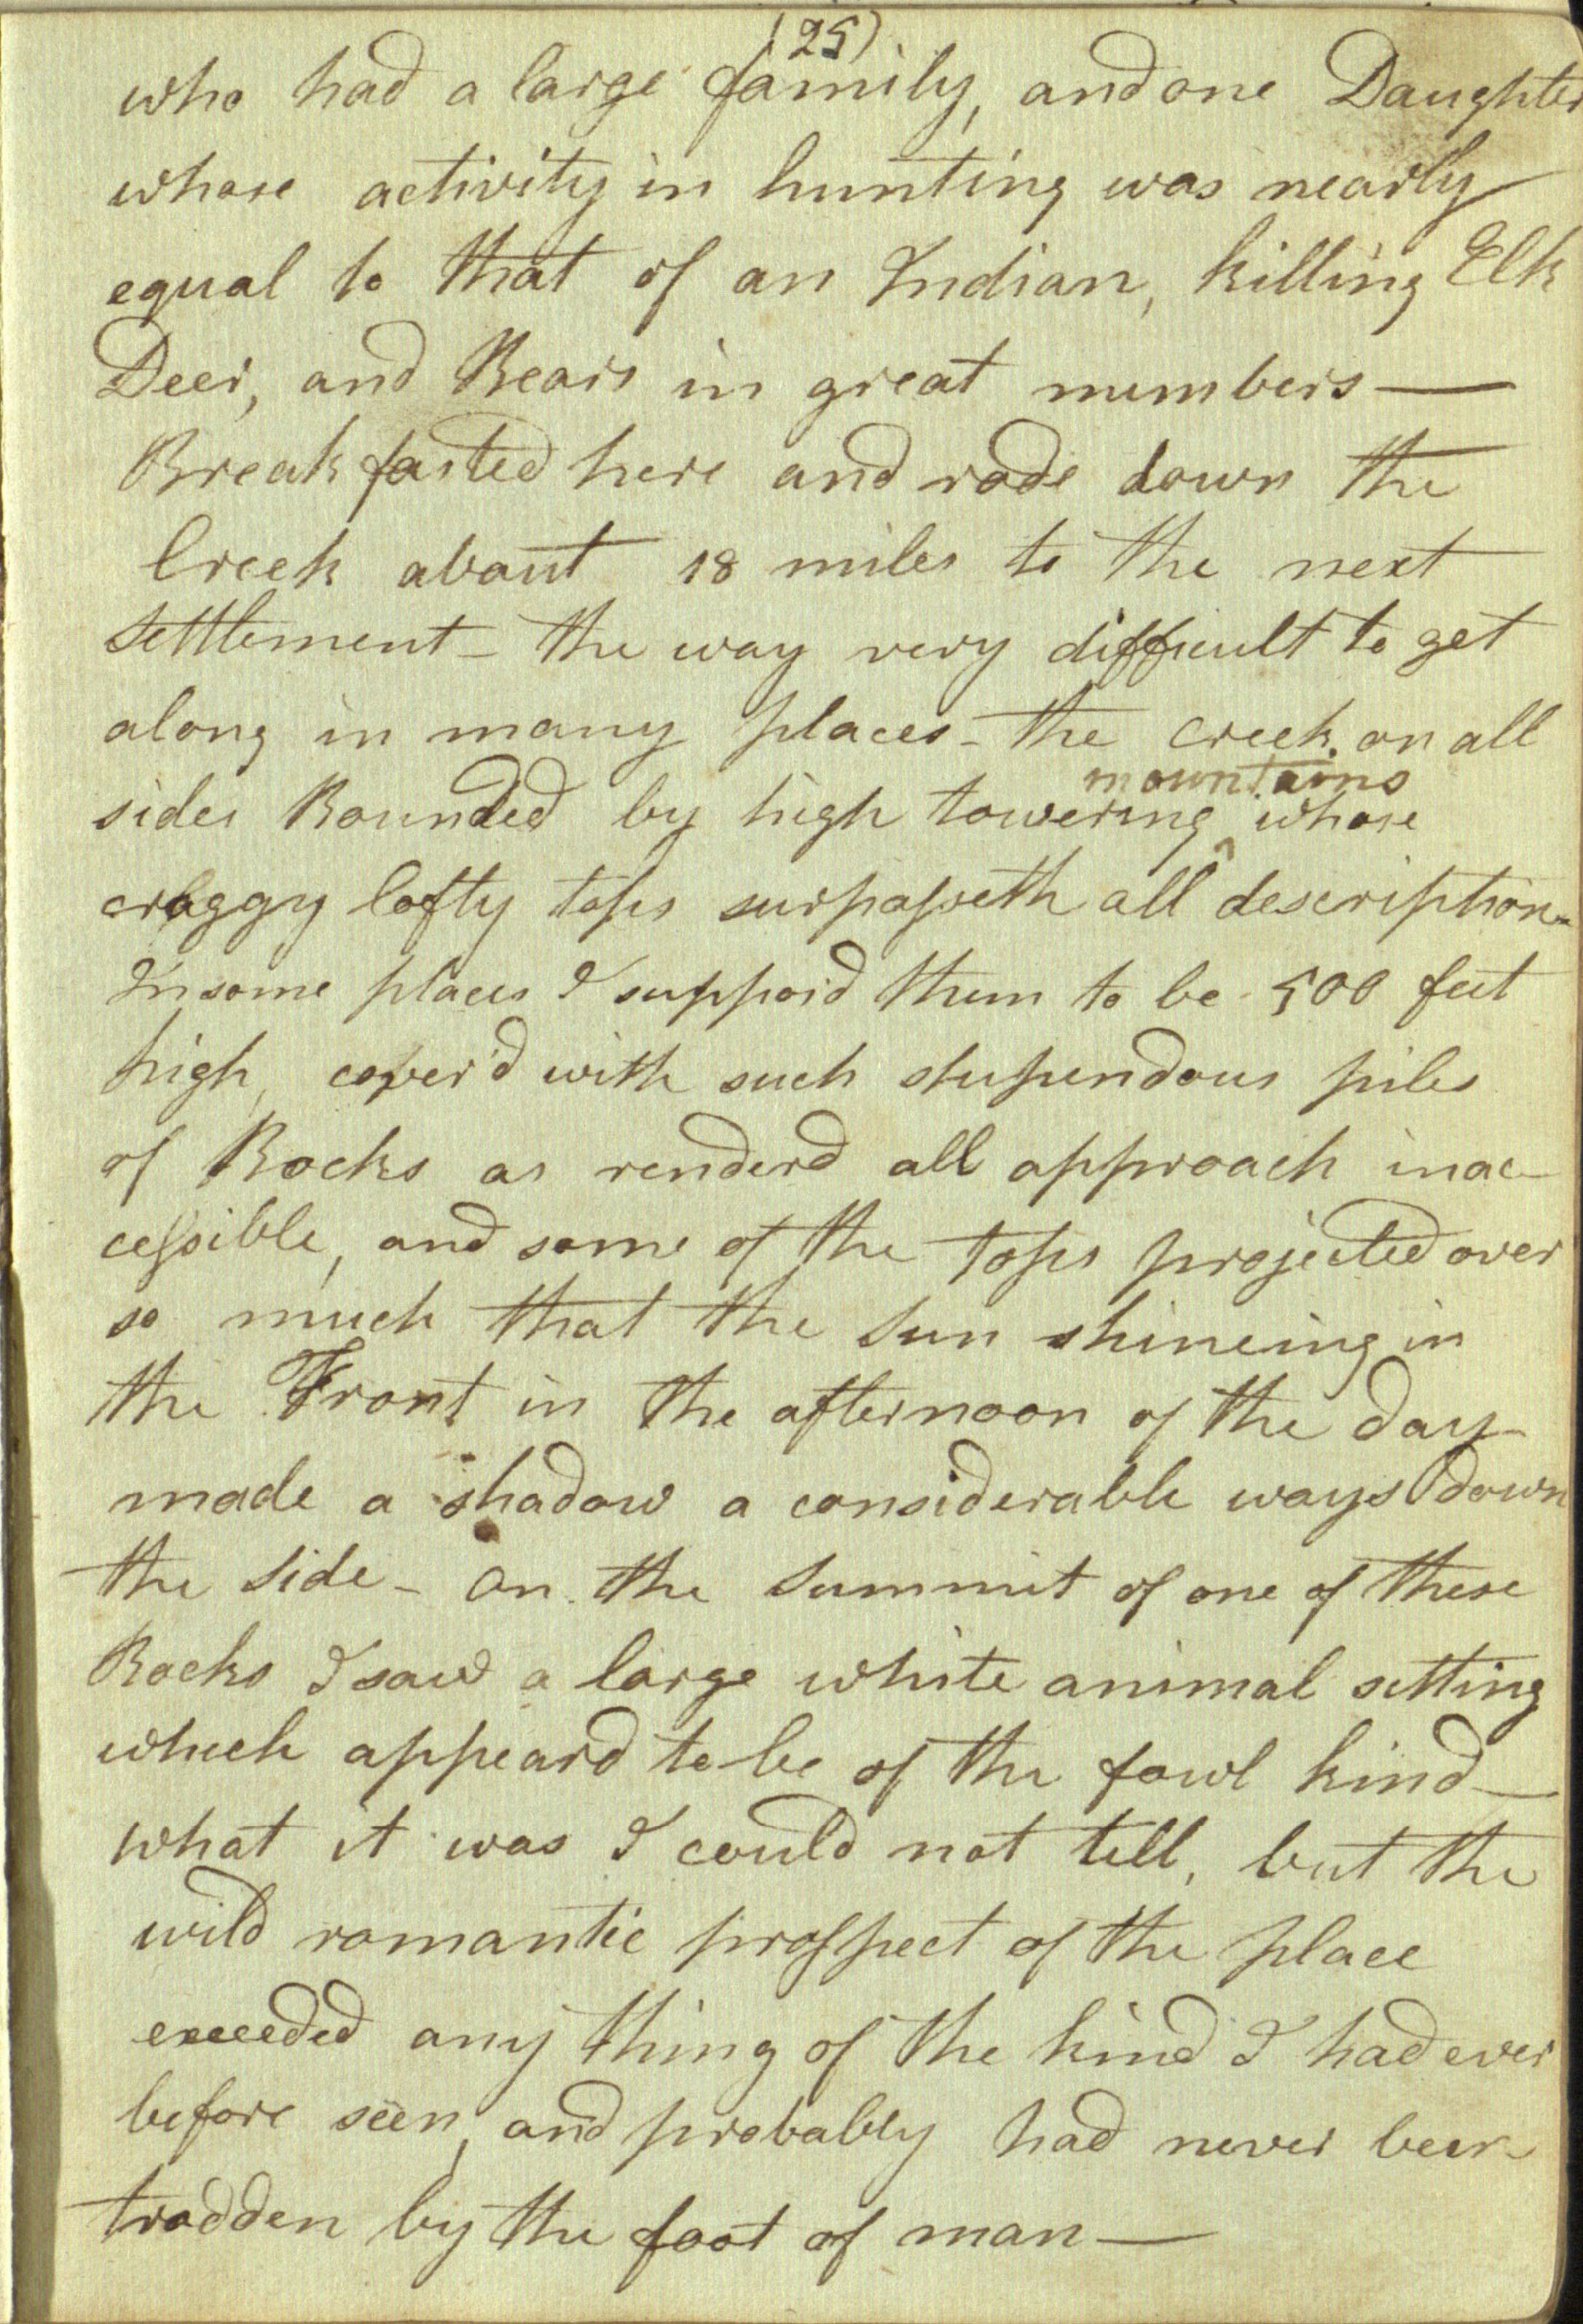 (25)
who had a large family, and one Daughter
whose activity in hunting was nearly
equal to that of an Indian, killing Elk
Deer, and Bears in great numbers—
Breakfasted here and rode down the
Creek about 18 miles to the next
settlement - the way very difficult to get
along in many places - the creek on all
mountains
sides Bounded by high towering ^ whose
craggy lofty tops surpasseth all description -
In some places I supposd them to be 500 feet
high, cover'd with such stupendous piles
of Rocks as renderd all approach inac-
cessible, and some of the tops projected over
so much that the sun shineing in
the Front in the afternoon of the day
made a shadow a considerable ways down
the side - on the summit of one of these
Rocks I saw a large white animal setting
which appeard to be of the fowl kind—
what it was I could not tell, but the
wild romantic prospect of the place
exceeded any thing of the kind I had ever
before seen, and probably had never been
trodden by the foot of man—